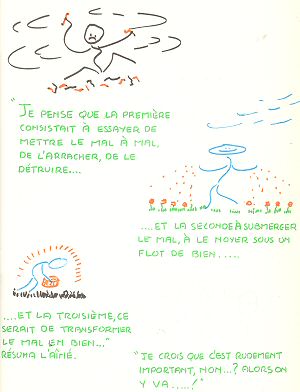 "JE PENSE QUE LA PREMIÈRE
CONSISTAIT À ESSAYER DE
METTRE LE MAL À MAL,
DE L'ARRACHER, DE LE
DÉTRUIRE....
....ET LA SECONDE À SUBMERGER
LE MAL, À LE NOYER SOUS UN
FLOT DE BIEN.....
....ET LA TROISIÈME, CE
SERAIT DE TRANSFORMER
LE MAL EN BIEN..."
RÉSUMA L'AÎNÉ.
"JE CROIS QUE C'EST RUDEMENT
IMPORTANT, NON...? ALORS ON
Y VA.....!"